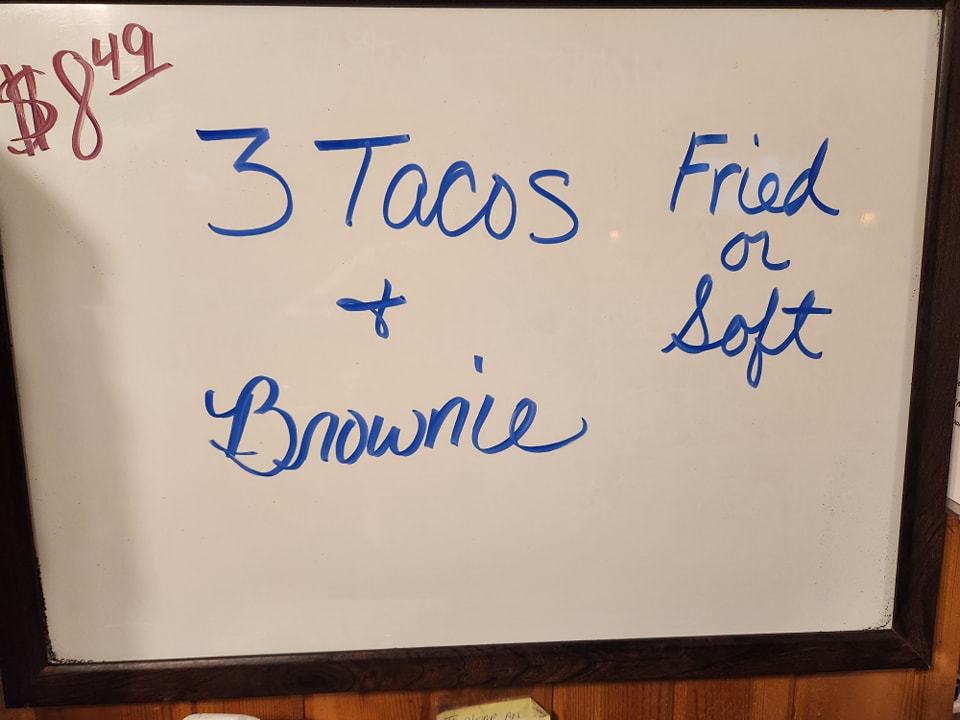 $8.49
3 Tacos
+
Brownie
Fried
or
Soft